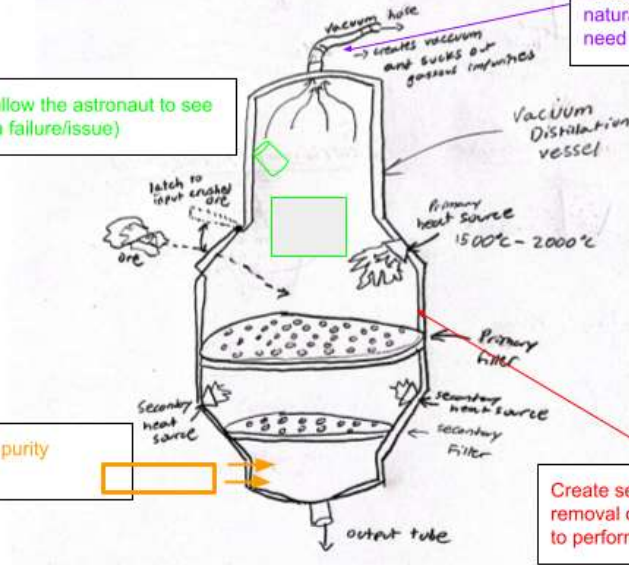 natura
need
vacuum hose
→ creates vaccum
and sucks out
gassous impurities
llow the astronaut to see
failure/issue)
Vacuum
Distillation
vessel
latch to
input crushed
ore
ore
Primary
heat source
1500°C - 2000°C
Primary
filter
Secondary
heat
source
secondary
heat source
secondary
Filter
purity
Create se
removal o
to perform
output tube